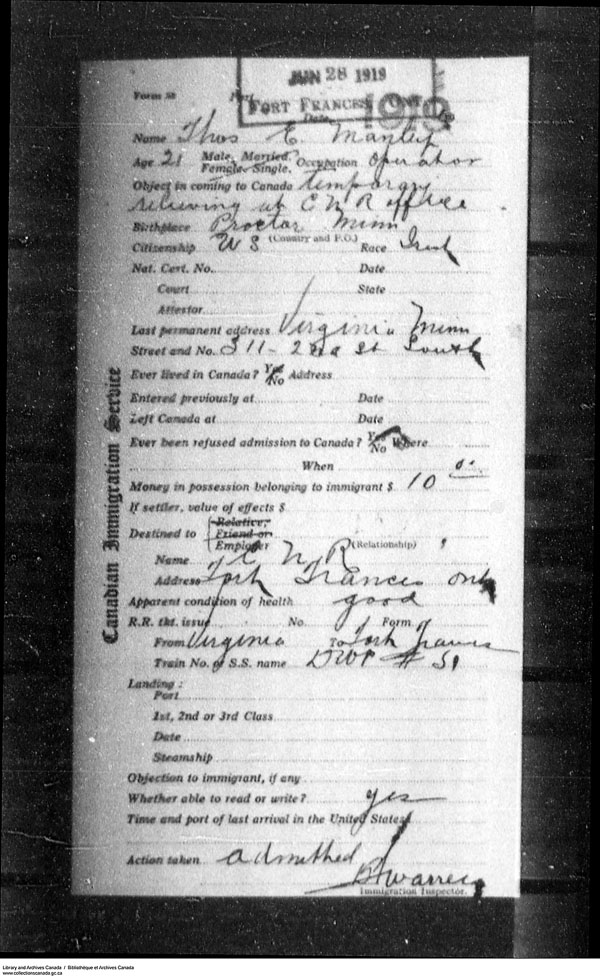 JUN 28 1919
Form 30 Port FORT FRANCES, ONT
Date 1919
Name Thos E. Manley
Age 21 Male, Married, Female, Single, Occupation Operator
Object in coming to Canada temporary
relieving at C N R office
Birthplace Proctor Minn
(Country and P.O.)
Citizenship U S Race Irish
Nat. Cert. No. Date
Court State
Attestor
Last permanent address Virginia Minn
Street and No. 311 - 2nd St South
Ever lived in Canada? Yes No Address
Entered previously at Date
Left Canada at Date
Ever been refused admission to Canada? Yes No Where
When
Money in possession belonging to immigrant $ 10
If settler, value of effects $
Destined to Relative, Friend or Employer (Relationship)
Name C N R
Address Fort Frances Ont
Apparent condition of health good
R.R. tkt. issue No. Form of
From Virginia To Fort Frances
Train No. or S.S. name DWP # 31
Landing:
Port
1st, 2nd or 3rd Class
Date
Steamship
Objection to immigrant, if any
Whether able to read or write? yes
Time and port of last arrival in the United States
Action taken admitted
Warren
Immigration Inspector.
Canadian Immigration Service
Library and Archives Canada / Bibliothèque et Archives Canada
www.collectionscanada.gc.ca